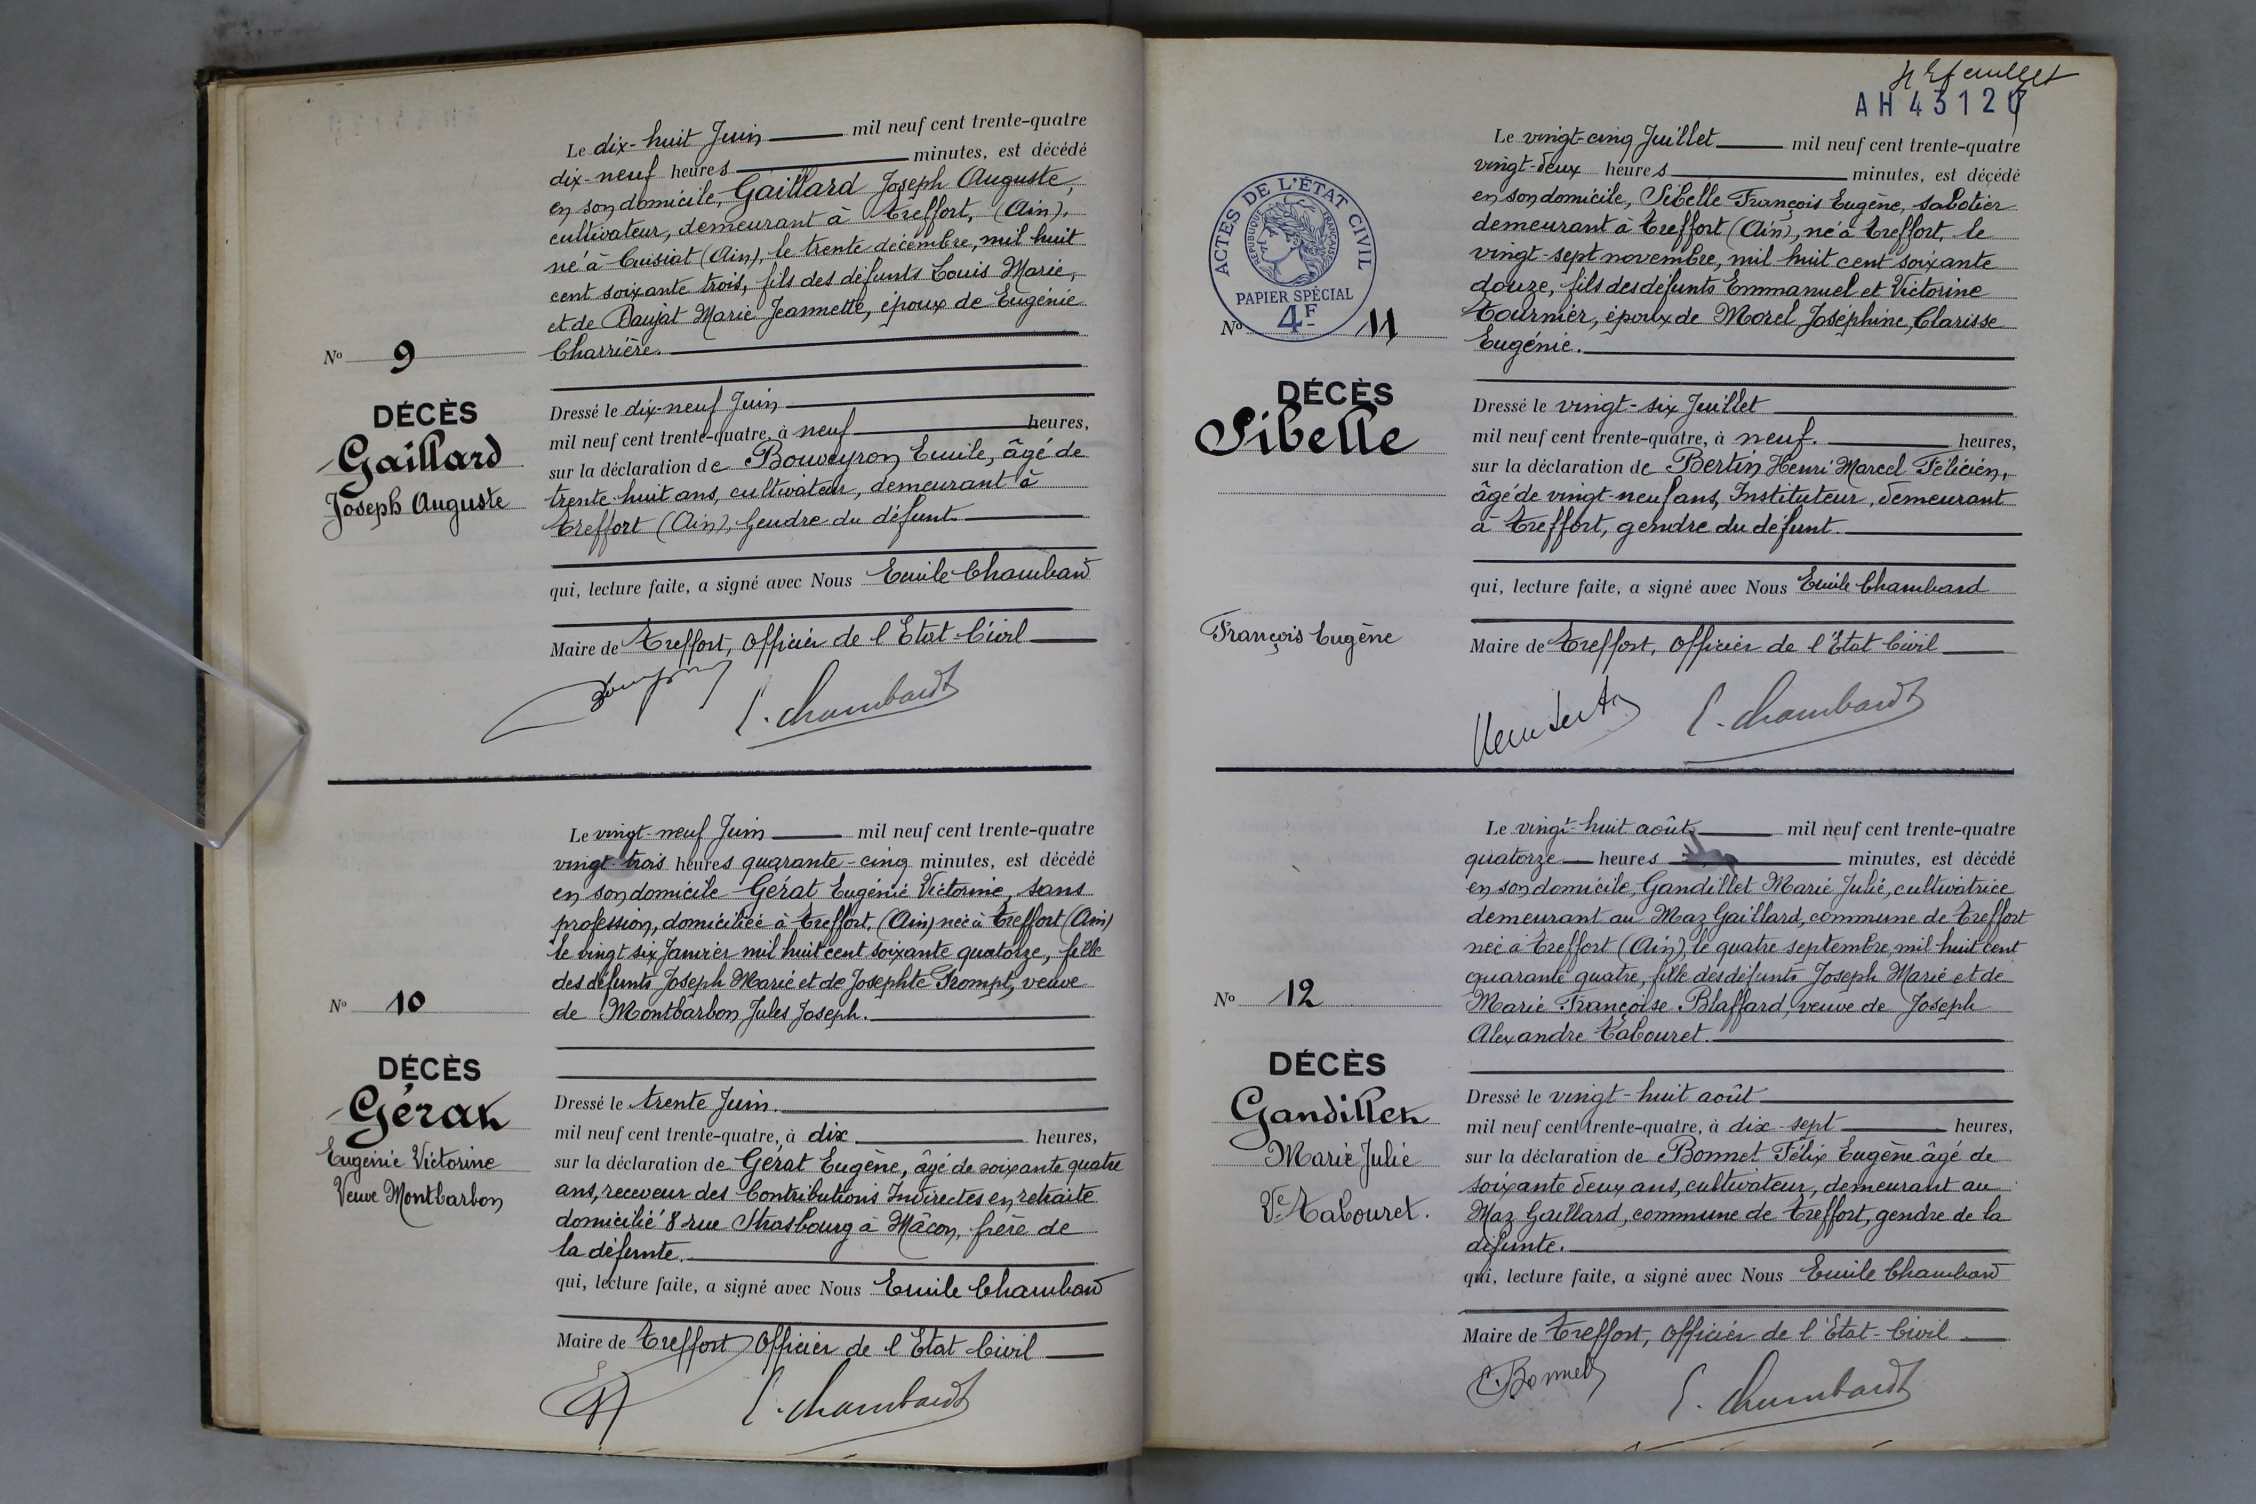 Le dix-huit Juin mil neuf cent trente-quatre
dix-neuf heures minutes, est décédé
en son domicile, Gaillard Joseph Auguste,
cultivateur, demeurant à Treffort, (Ain),
né à Cuisiat (Ain), le trente décembre, mil huit
cent soixante trois, fils des défunts Louis Marie,
et de Daujat Marie Jeannette, époux de Eugénie
Charrière.
No 9
DÉCÈS
Gaillard
Joseph Auguste
Dressé le dix-neuf Juin
mil neuf cent trente-quatre, à neuf heures,
sur la déclaration de Bouveyron Emile, âgé de
trente-huit ans, cultivateur, demeurant à
Treffort (Ain), Gendre du défunt
qui, lecture faite, a signé avec Nous Emile Chambard
Maire de Treffort, Officier de l'Etat-Civil
E. Chambard
Le vingt-neuf Juin mil neuf cent trente-quatre
vingt-trois heures quarante-cinq minutes, est décédé
en son domicile Gérat Eugénie Victorine, sans
profession, domiciliée à Treffort, (Ain) née à Treffort (Ain)
le vingt six Janvier mil huit cent soixante quatorze, fille
des défunts Joseph Marie et de Josephte Prompt, veuve
de Montbarbon Jules Joseph.
No 10
DÉCÈS
Gérat
Eugénie Victorine
Veuve Montbarbon
Dressé le trente Juin.
mil neuf cent trente-quatre, à dix heures,
sur la déclaration de Gérat Eugène, âgé de soixante quatre
ans, receveur des Contributions Indirectes en retraite
domicilié 8 rue Strasbourg à Mâcon, frère de
la défunte.
qui, lecture faite, a signé avec Nous Emile Chambard
Maire de Treffort Officier de l'Etat-Civil
E. Chambard
4e feuillet
AH 43120
ACTES DE L'ÉTAT CIVIL
RÉPUBLIQUE FRANÇAISE
PAPIER SPÉCIAL
4F
Le vingt-cinq Juillet mil neuf cent trente-quatre
vingt-deux heures minutes, est décédé
en son domicile, Sibelle François Eugène, sabotier
demeurant à Treffort (Ain), né à Treffort, le
vingt-sept novembre, mil huit cent soixante
douze, fils des défunts Emmanuel et Victorine
Tournier, époux de Morel Joséphine, Clarisse
Eugénie.
No 11
DÉCÈS
Sibelle
François Eugène
Dressé le vingt-six Juillet
mil neuf cent trente-quatre, à neuf. heures,
sur la déclaration de Bertin Henri Marcel Félicien,
âgé de vingt-neuf ans, Instituteur, demeurant
à Treffort, gendre du défunt.
qui, lecture faite, a signé avec Nous Emile Chambard
Maire de Treffort, Officier de l'Etat Civil
E. Chambard
Le vingt-huit août mil neuf cent trente-quatre
quatorze heures minutes, est décédé
en son domicile, Gandillet Marie Julie, cultivatrice
demeurant au Maz Gaillard, commune de Treffort
née à Treffort (Ain), le quatre septembre, mil huit cent
quarante quatre, fille des défunts Joseph Marie et de
Marie Françoise Blaffard, veuve de Joseph
Alexandre Tabouret.
No 12
DÉCÈS
Gandillet
Marie Julie
Ve Tabouret.
Dressé le vingt-huit août
mil neuf cent trente-quatre, à dix-sept heures,
sur la déclaration de Bonnet Félix Eugène âgé de
soixante deux ans, cultivateur, demeurant au
Maz Gaillard, commune de Treffort, gendre de la
défunte.
qui, lecture faite, a signé avec Nous Emile Chambard
Maire de Treffort, Officier de l'Etat-Civil
Bonnet E. Chambard